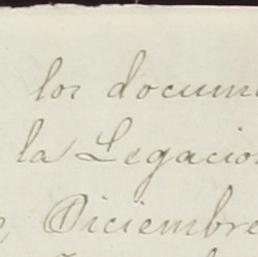 los docum
la Legacion
Diciembre